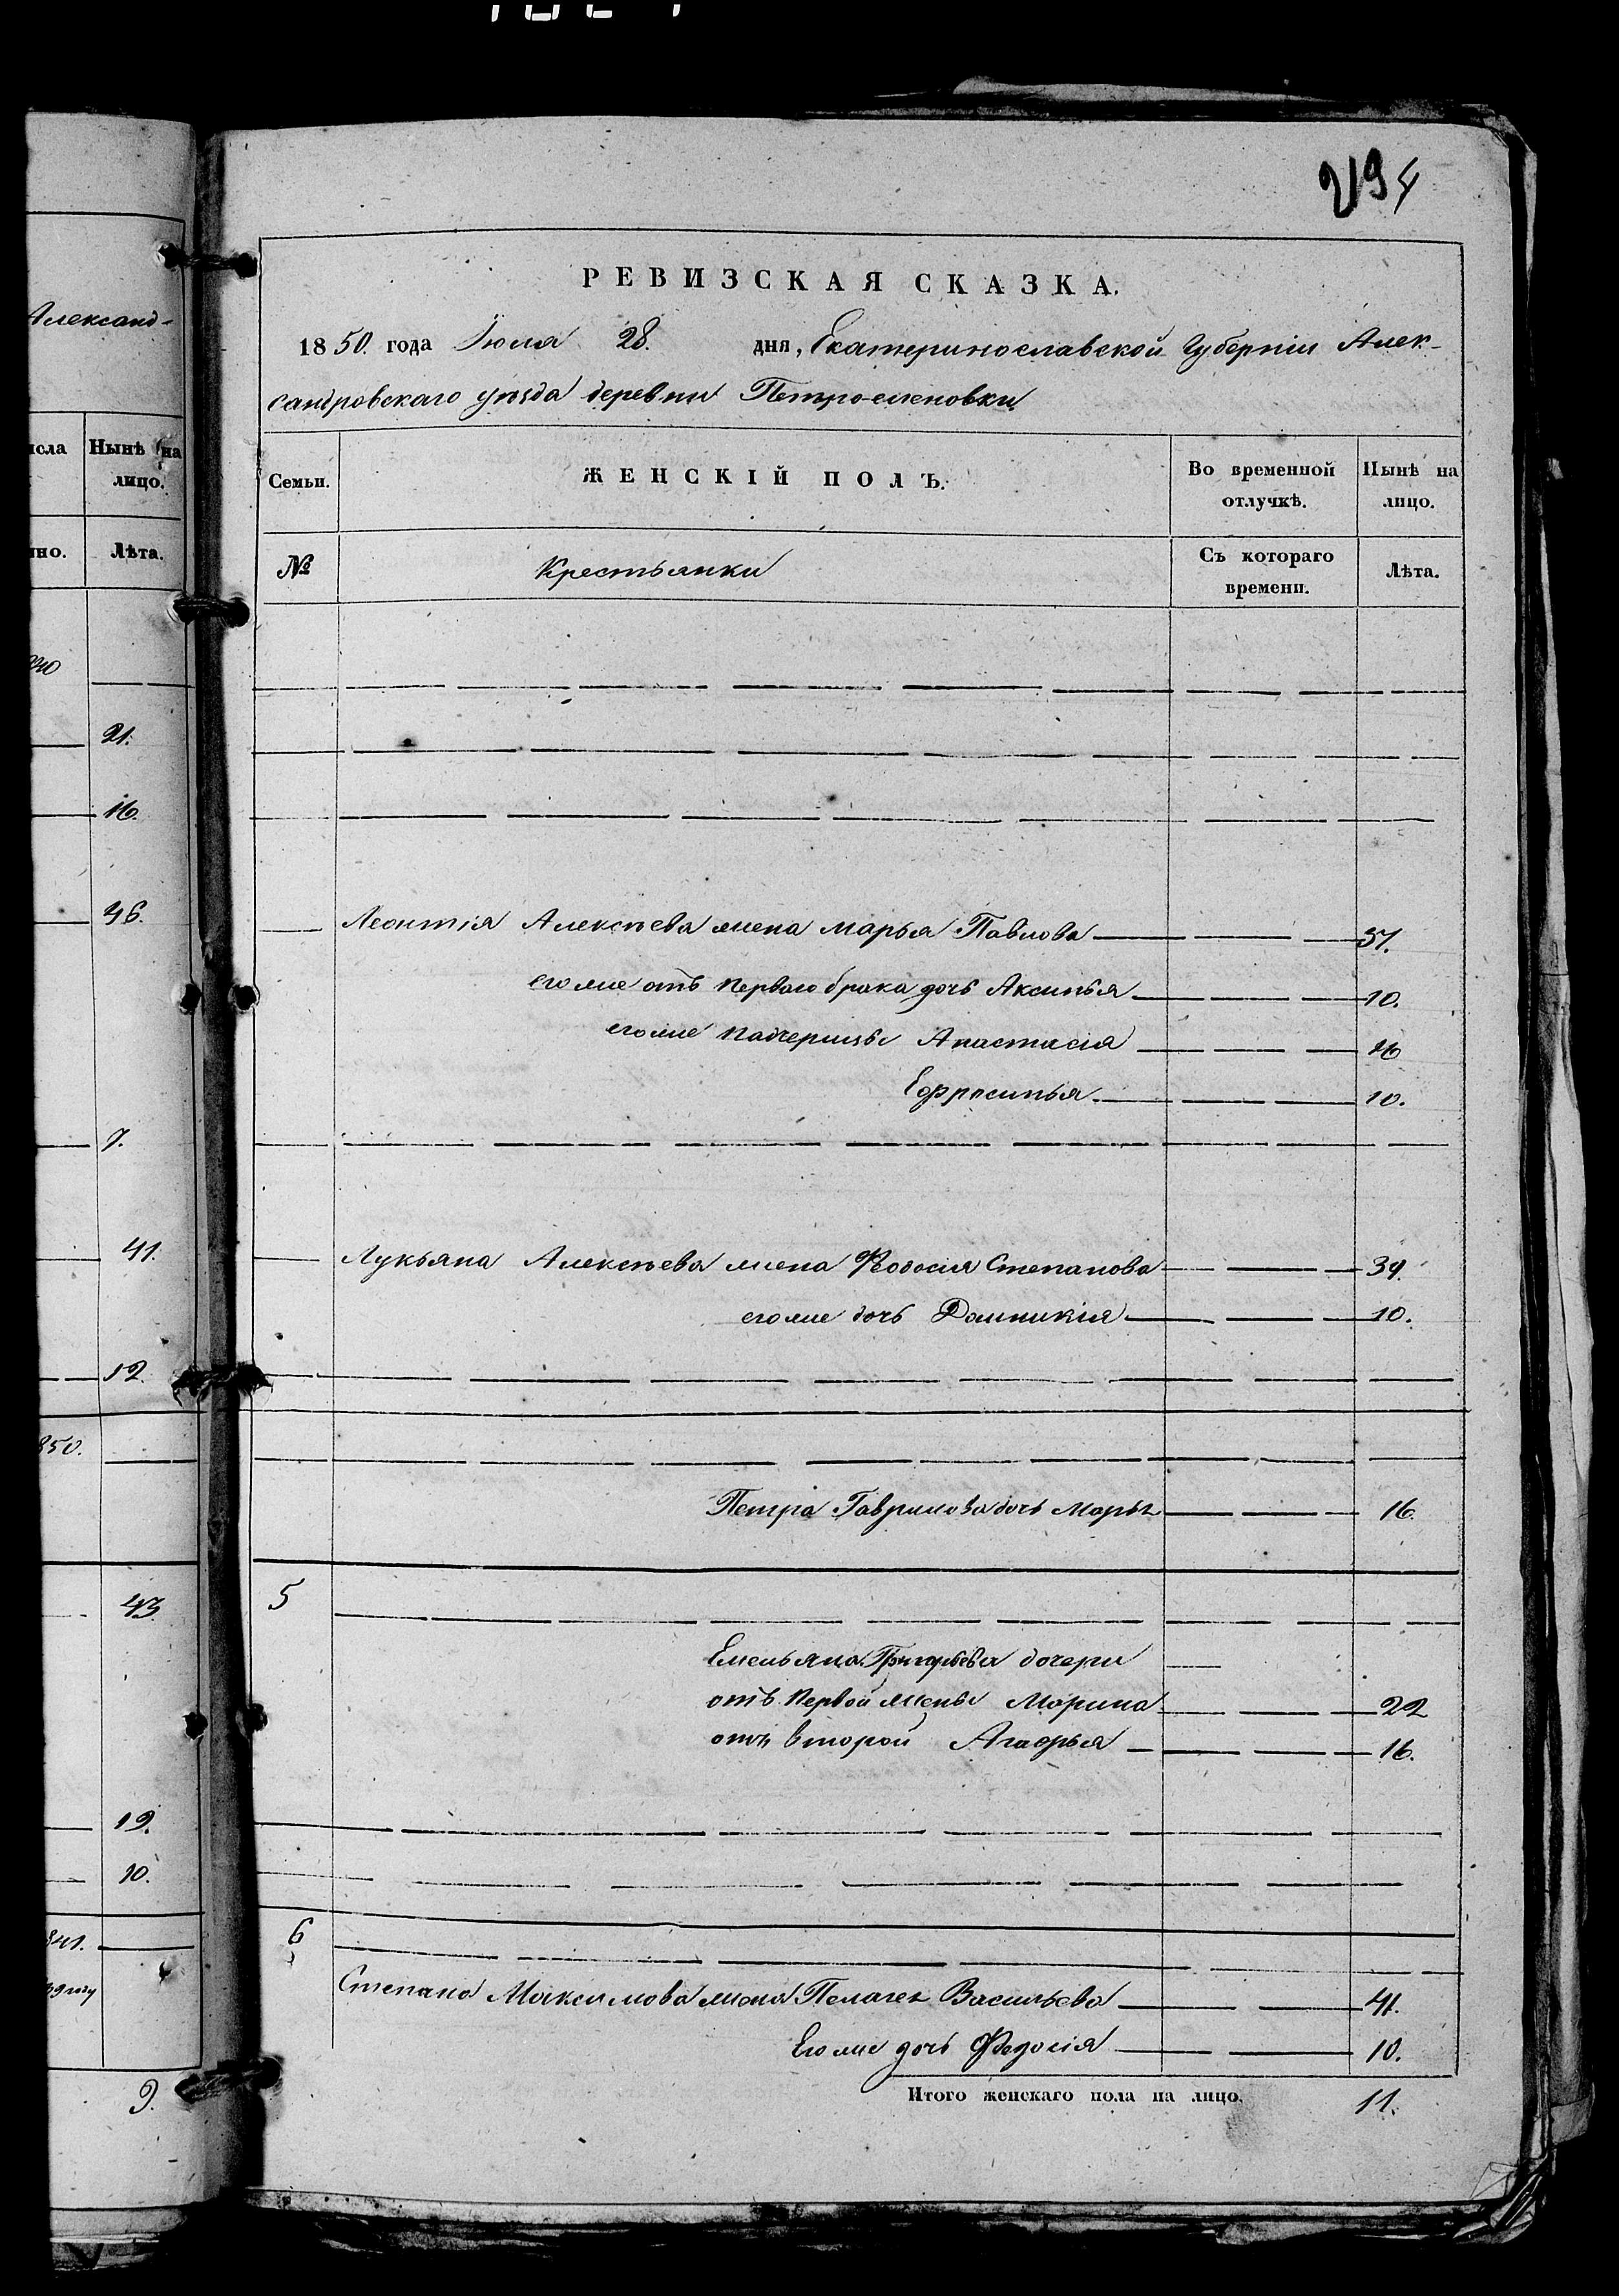 Александ-
исла Нынѣ на
лицо.
но. Лѣта.
21.
16.
46.
7.
41.
12.
850.
43
19.
10.
841.
39 году
9.
294
РЕВИЗСКАЯ СКАЗКА.
1850. года Іюля 28. дня, Екатеринославской Губерніи Алек-
сандровскаго уѣзда деревни Петро-еленовки
Семьи. ЖЕНСКІЙ ПОЛЪ. Во временной отлучкѣ. Нынѣ на лицо.
№ Крестьянки Съ котораго времени. Лѣта.
Леонтія Алексѣева жена Марья Павлова 37.
его же отъ перваго брака дочь Аксинья 10.
его же падчерицы Анастасія 16
Ефросинья 10.
Лукьяна Алексѣева жена Федосія Степанова 39.
его же дочь Домникія 10.
Петра Гаврилова дочь Марья 16.
5
Емельяна Григорьева дочери
отъ первой жены Марина 22
отъ второй Агафья 16.
6
Степана Максимова жена Пелагея Васильева 41.
Его же дочь Федосія 10.
Итого женскаго пола на лицо. 11.